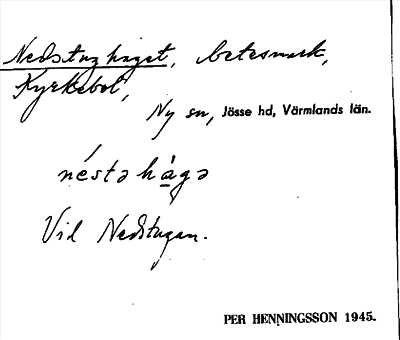 Nedstughaget, betesmark,
Kyrkebol,
Ny sn, Jösse hd, Värmlands län.
néstə hà̱gə
Vid Nedstugan.
PER HENNINGSSON 1945.